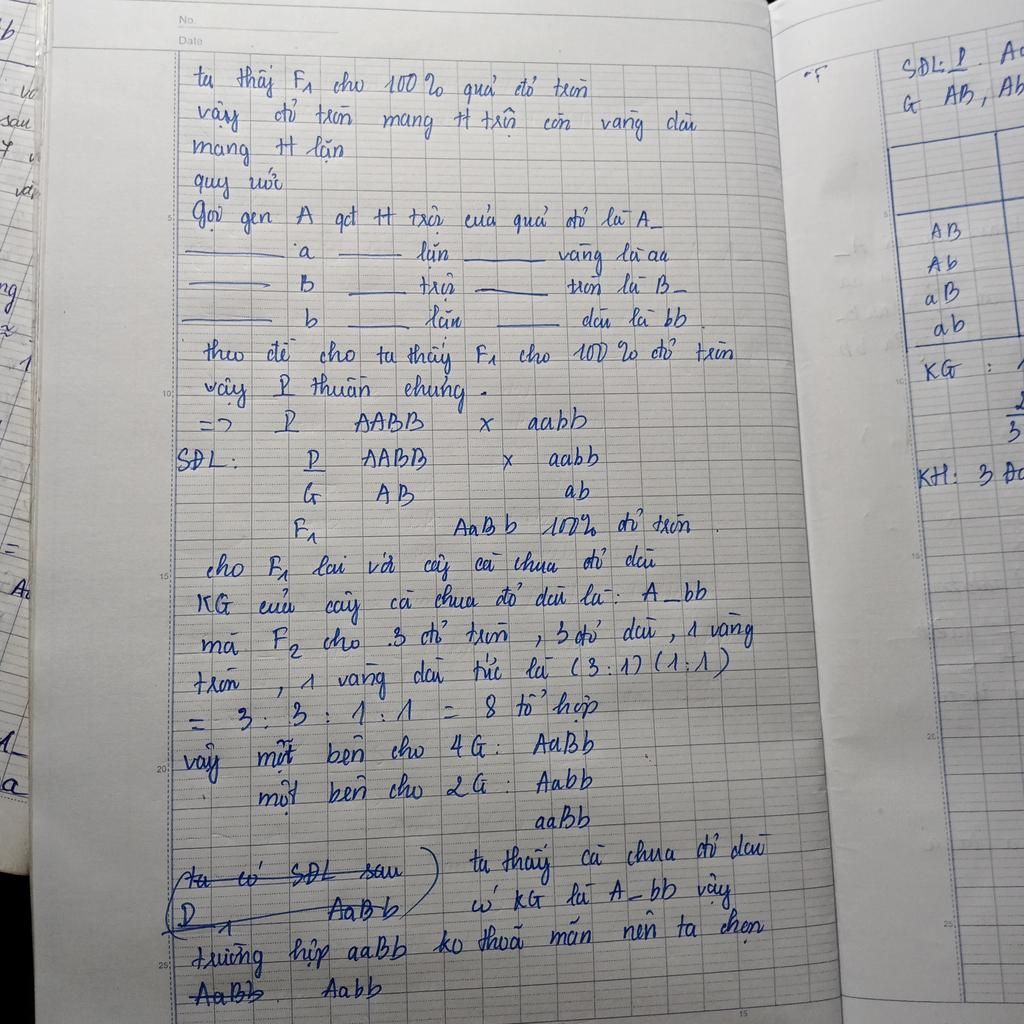 No.
Date
ta thấy F₁ cho 100% quả đỏ tròn
vậy đỏ tròn mang tt trội còn vàng dài
mang tt lặn
quy ước
Gọi gen A qđ tt trội của quả đỏ là A_
——— a ——— lặn ——— vàng là aa
——— B ——— trội ——— tròn là B_
——— b ——— lặn ——— dài là bb.
theo đề cho ta thấy F₁ cho 100% đỏ tròn
vậy P thuần chủng.
=> P AABB x aabb
SĐL: P AABB x aabb
G AB ab
F₁ AaBb 100% đỏ tròn.
cho F₁ lai với cây cà chua đỏ dài
KG của cây cà chua đỏ dài là: A_bb
mà F₂ cho 3 đỏ tròn, 3 đỏ dài, 1 vàng
tròn, 1 vàng dài tức là (3:1)(1:1)
= 3 : 3 : 1 : 1 = 8 tổ hợp
vậy một bên cho 4G: AaBb
một bên cho 2G: Aabb
aaBb
ta có SĐL sau
P AaBb
ta thấy cà chua đỏ dài
có KG là A_bb vậy
trường hợp aaBb ko thoả mãn nên ta chọn
AaBb Aabb
SĐL: P
G AB, Ab
AB
Ab
aB
ab
KG :
KH: 3